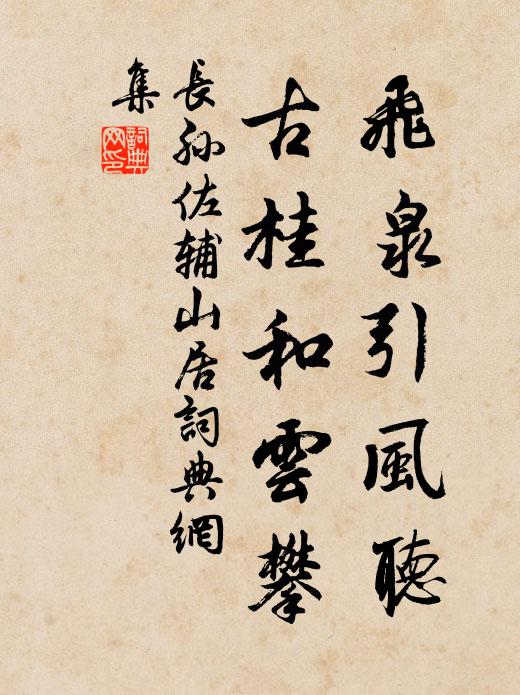 飛泉引風聽
古桂和雲攀
長孫佐輔山居詞典網
集
詞典
网印